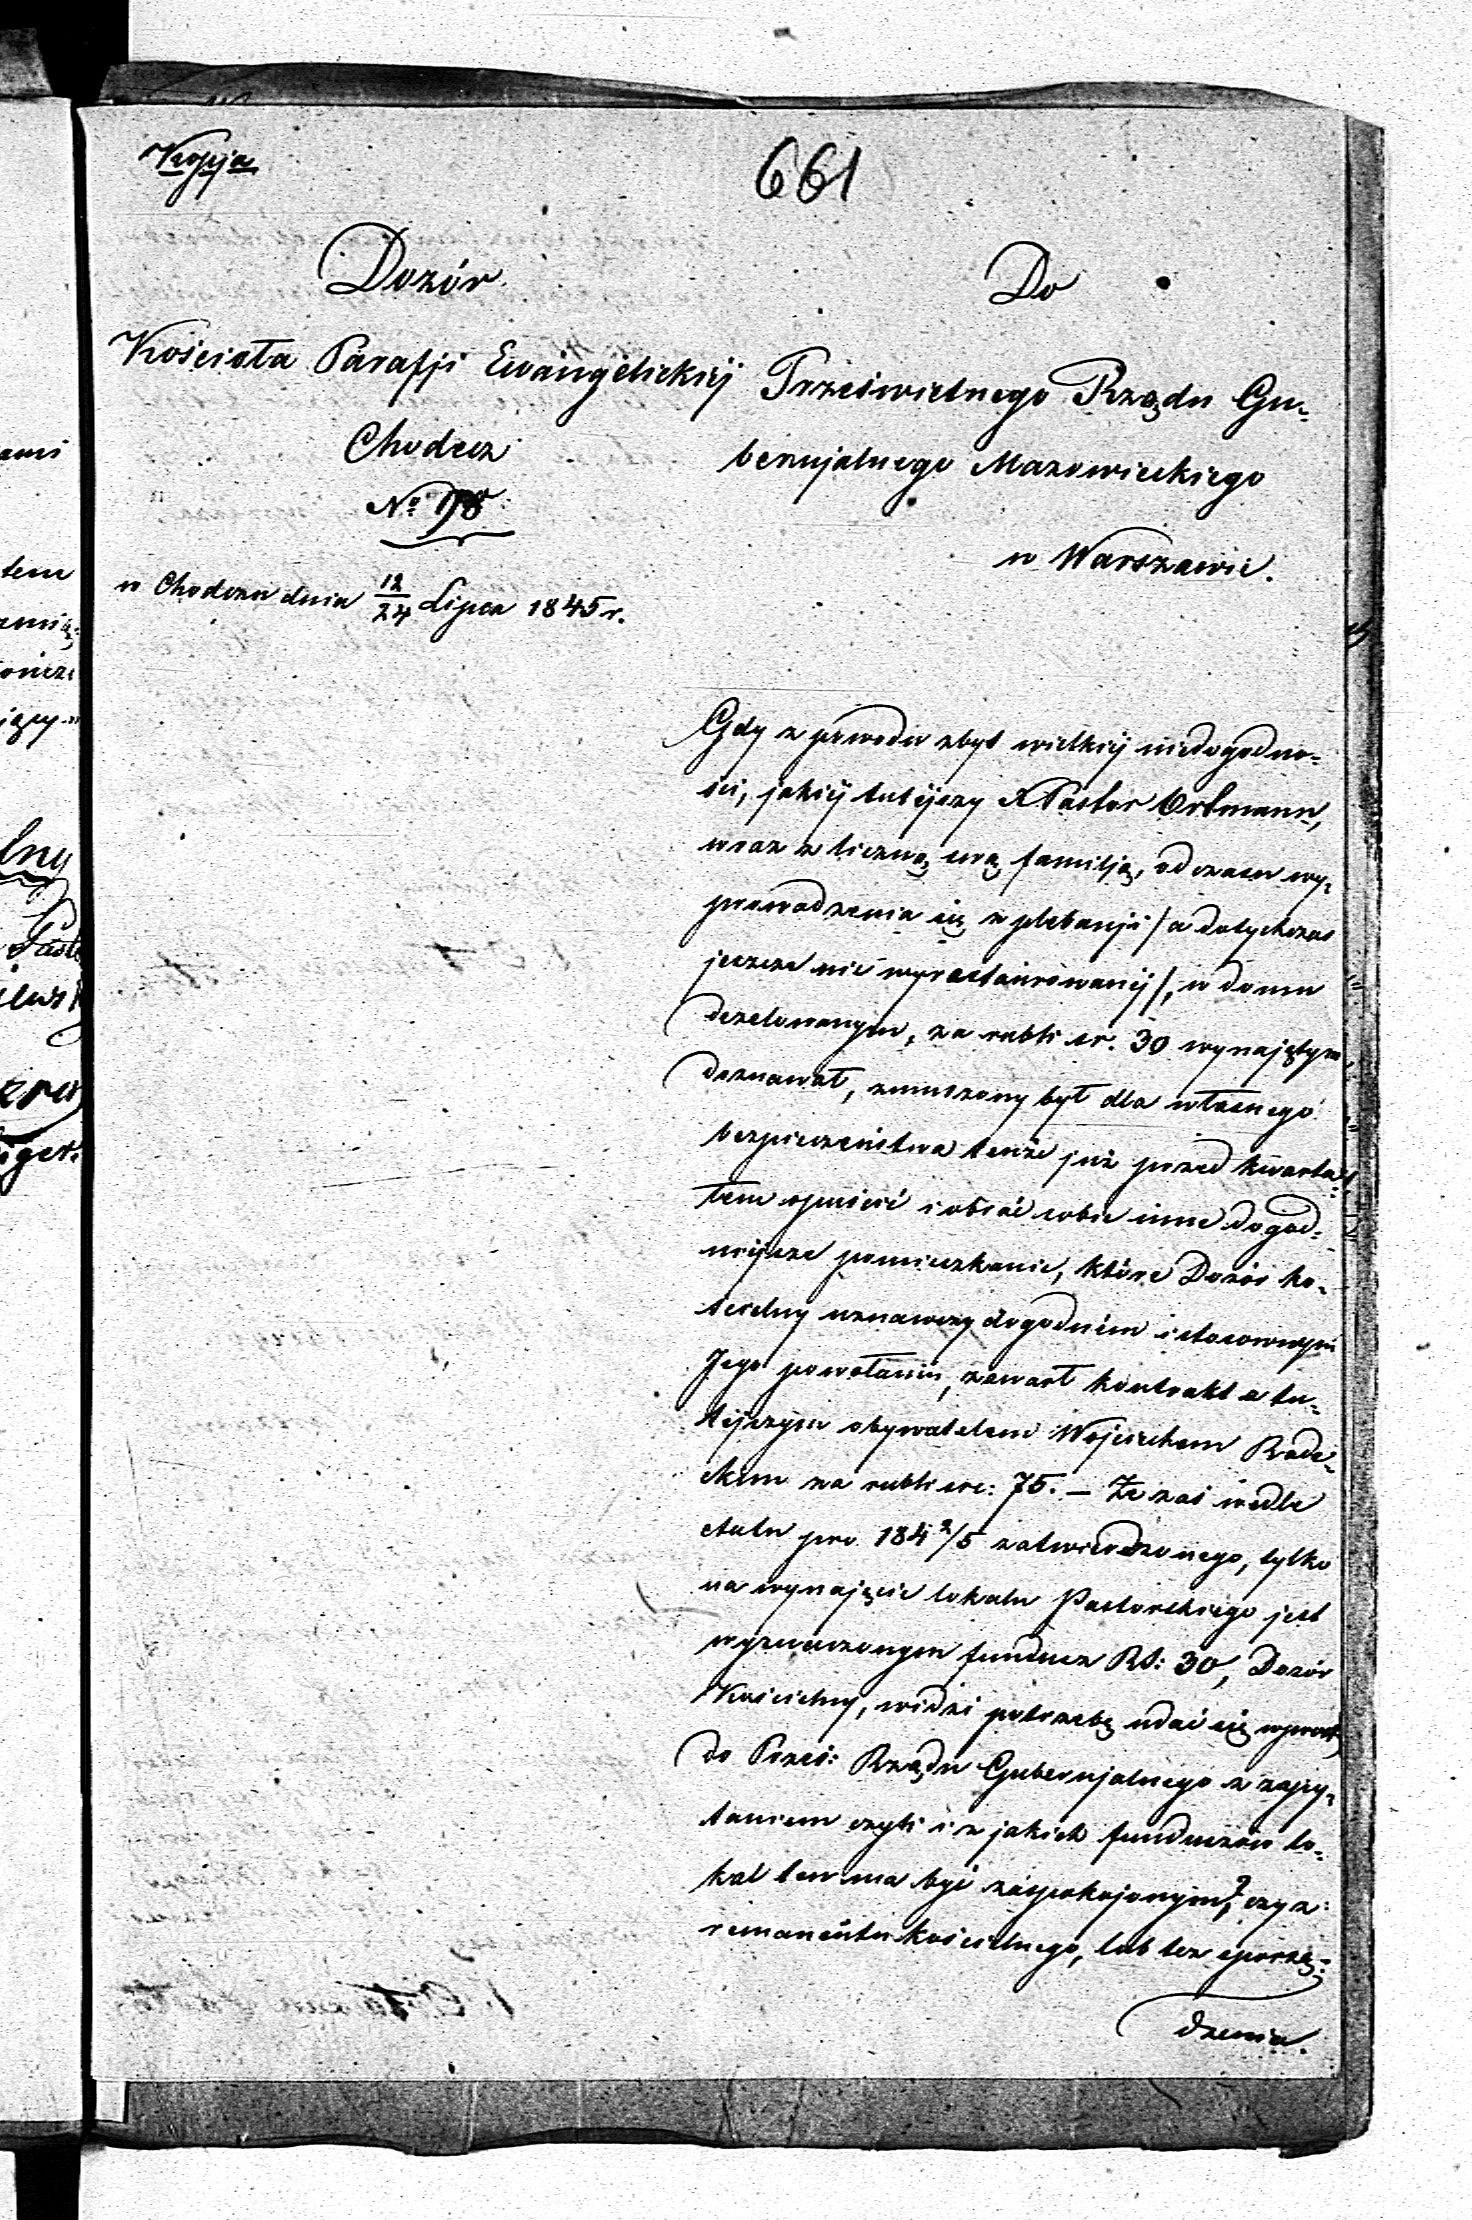 Kopja
661
Dozór
Kościoła Parafji Ewangelickiéj
Chodecz
No 198
w Chodczu dnia 12/24 Lipca 1845 r.
Do
Prześwietnego Rządu Gu-
bernjalnego Mazowieckiego
w Warszawie.
Gdy z powodu zbyt wielkiéj niedogodno-
ści, jakiéj tutéjszy X Pastor Ortmann,
wraz z liczną swą familją, od czasu wy-
prowadzenia się z plebanji /a dotychczas
jeszcze nie wyrestaurowanéj/, w domu
dezelowanym, za rubli sr. 30 wynajętym,
doznawał, zmuszony był dla własnego
bezpieczeństwa tenże już przed kwarta-
łem opuścić i obrać sobie inne dogod-
niejsze pomieszkanie, które Dozór ko-
ścielny uznawszy dogodném i stosownym
Jego powołaniu, zawarł kontrakt z tu-
téjszym obywatelem Wojciechem Rade-
ckim za rubli sre: 75. — Że zaś wedle
etatu pro 184 2/5 zatwierdzonego, tylko
na wynajęcie lokalu Pastorskiego jest
wyznaczonym fundusz RS: 30, Dozór
Kościelny, widzi potrzebę udać się wprost
do Prześ: Rządu Gubernjalnego z zapy-
taniem czyli i z jakich funduszów lo-
kal ten ma być zaspokojonym? czy z
remanentu kościelnego, lub tez sporzą-
dzenia.